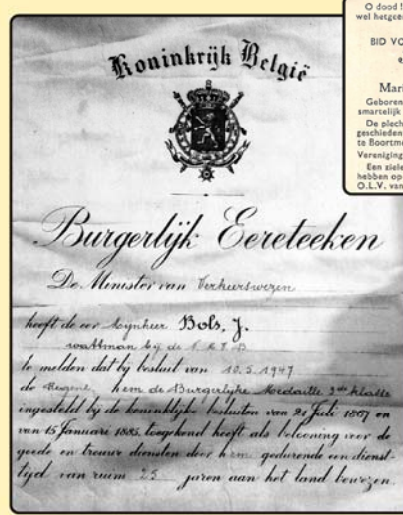 O dood !
wel hetgee
BID VO
e
Mari
Geboren
smartelijk
De plech
geschieden
te Boortme
Vereniging
Een ziele
hebben op
O.L.V. van
Koninkrijk België
Burgerlijk Eereteeken
De Minister van Verkeerswezen
heeft de eer Mijnheer Bols, J.
wattman bij de N.M.V.B
te melden dat bij besluit van 10.5.1947
de Regent, hem de Burgerlijke Medaille 2de klasse
ingesteld bij de koninklijke besluiten van 21 Juli 1867 en
van 15 Januari 1885, toegekend heeft als belooning voor de
goede en trouwe diensten door hem gedurende een dienst-
tijd van ruim 25 jaren aan het land bewezen.